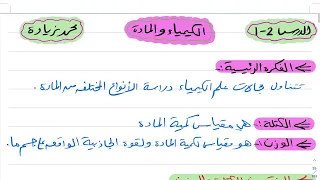 الدرس 2-1 الكيمياء والمادة محمد زيادة
الفكرة الرئيسية:
تتناول مجالات علم الكيمياء دراسة الأنواع المختلفه من المادة.
الكتلة: هي مقياس كمية المادة
الوزن: هو مقياس لكمية المادة ولقوة الجاذبية الواقعه على جسم ما.